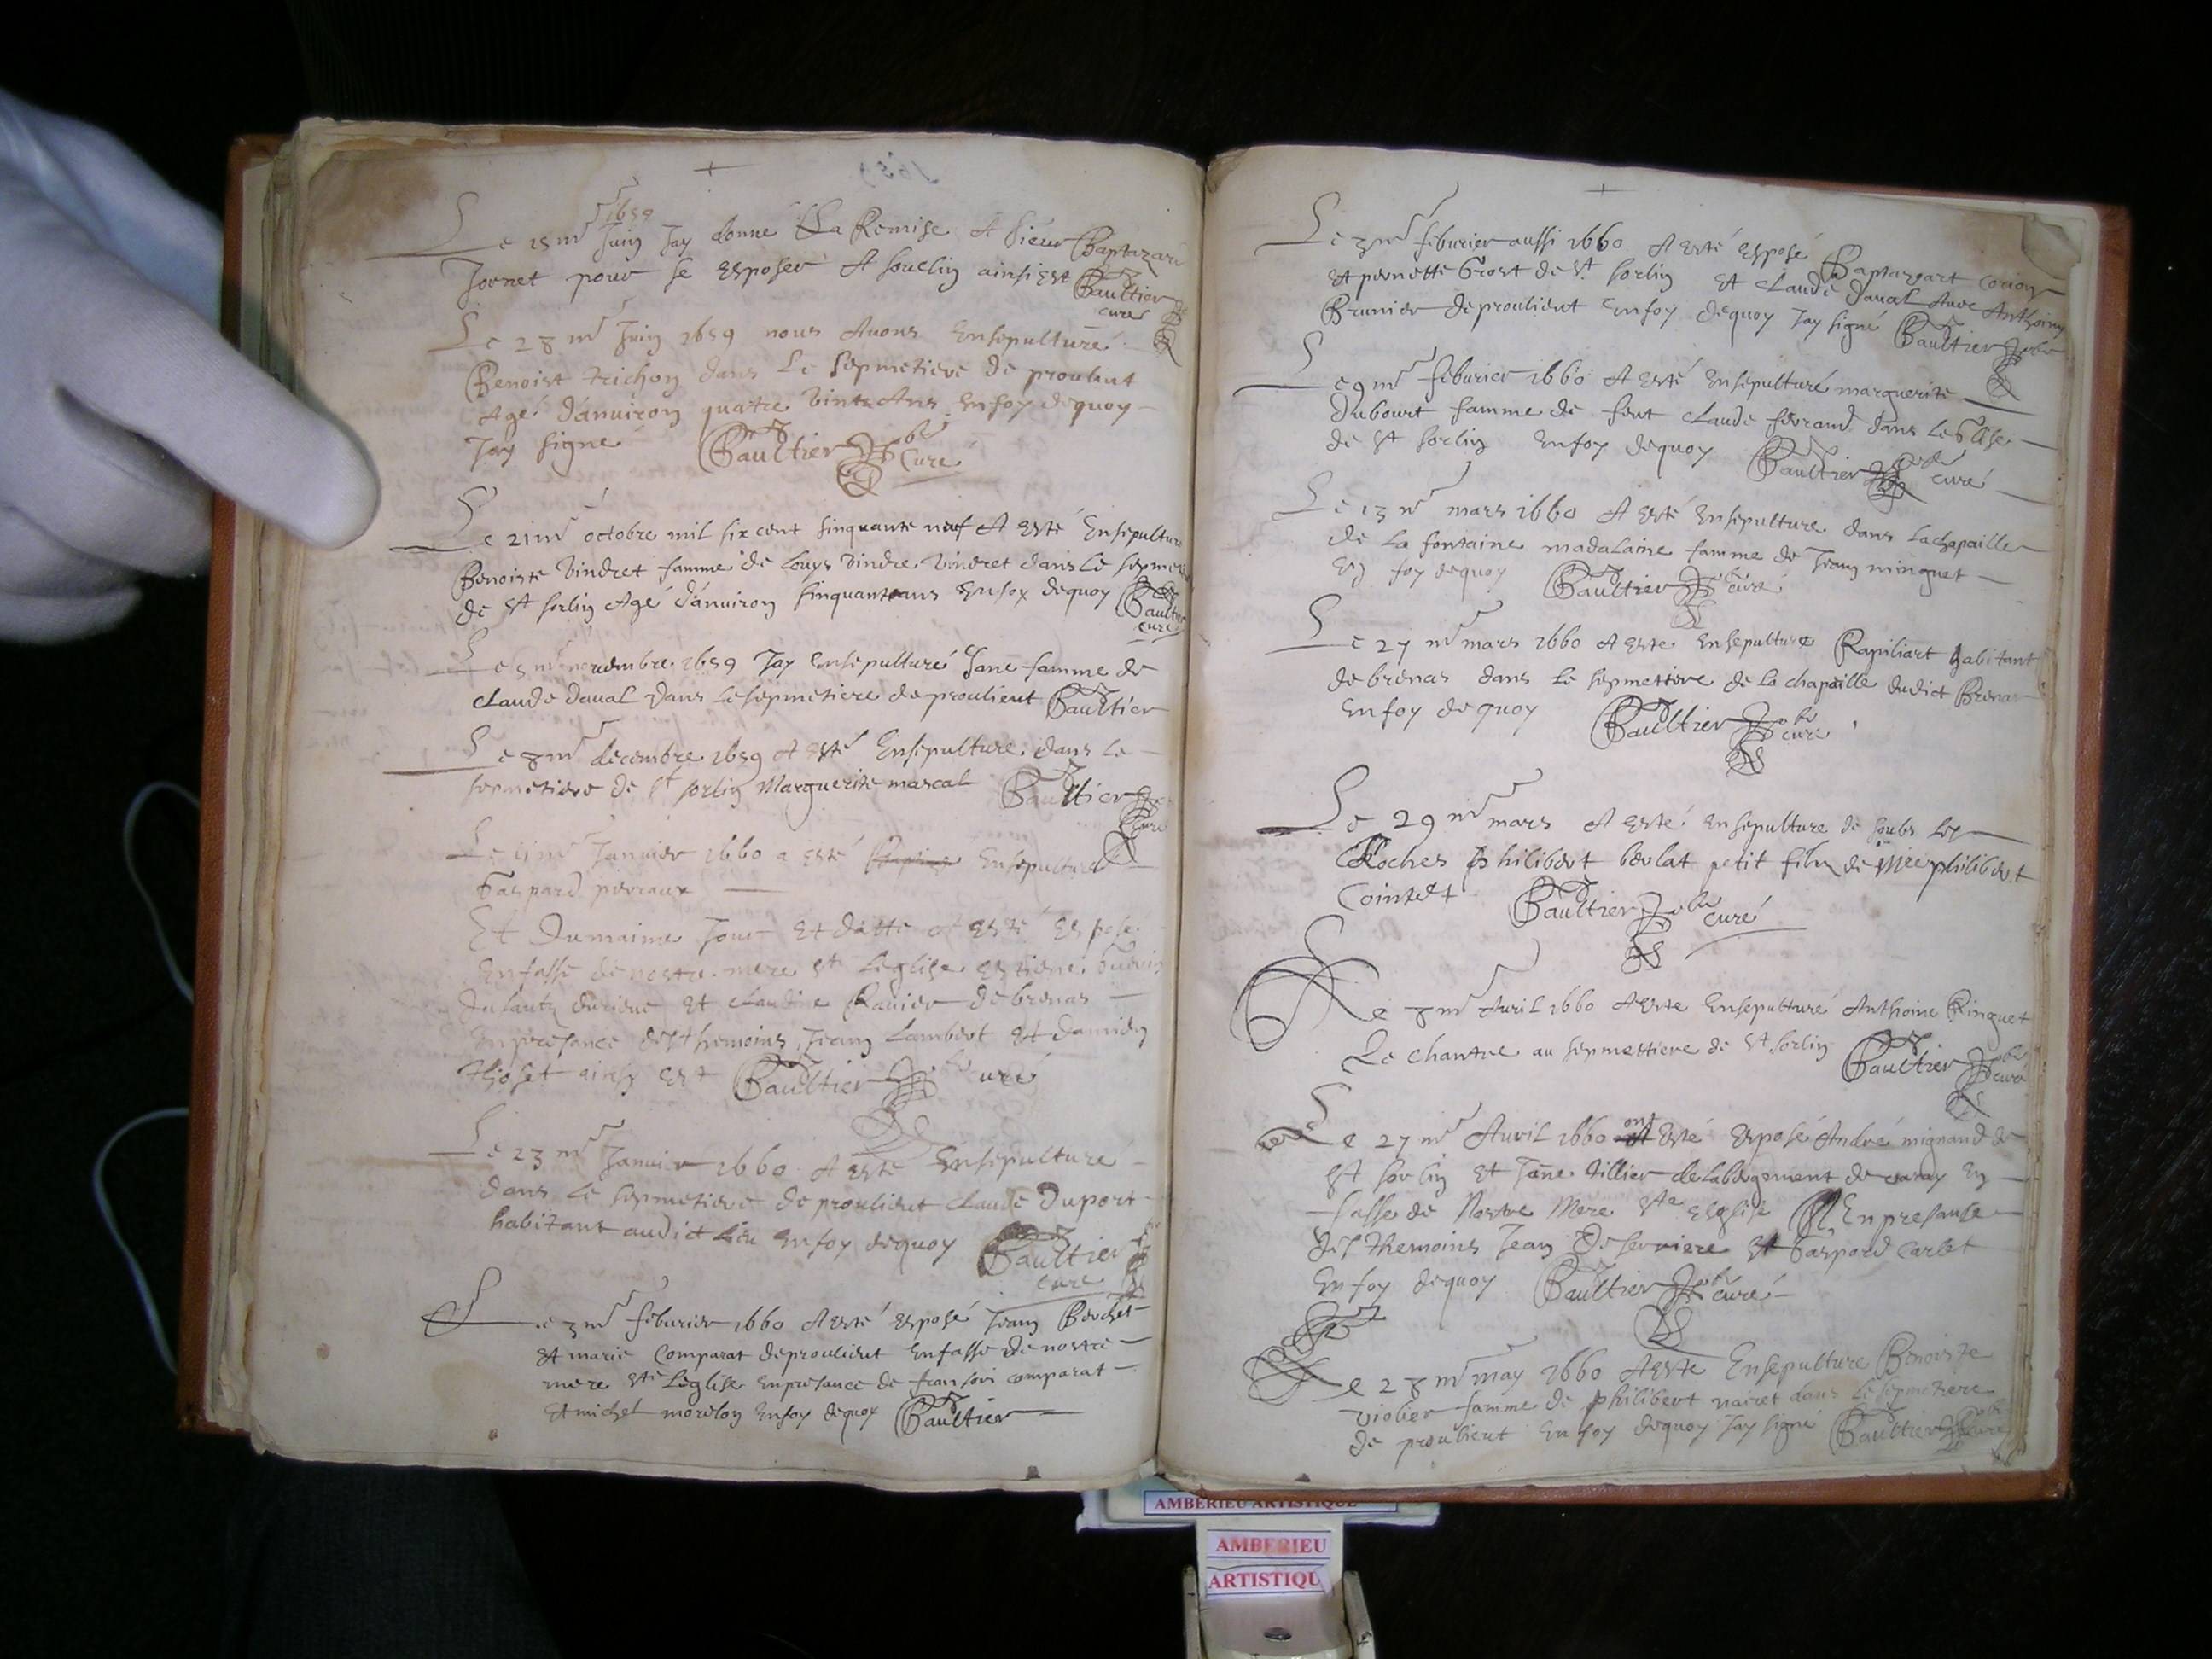 1659
Le 15me Juin Jay donné La Remise A sieur Baptazard
Jornet pour se esposer A souclin ainsi est Baultier
curé
Le 28me Juin 1659 nous Avons Ensepulturé
Benoist trichon dans Le sepmetiere de proulieut
Agé d'anuiron quatre vints Ans En foy dequoy
Jay signé Baultier pbre Curé
Le 21me octobre mil six cent sinquante neuf A esté Ensepulturé
Benoiste vindret famme de Louys vindret dans Le sepmetiere
de st sorlin Agé d'anuiron sinquante ans En foy dequoy Baultier
curé
Le 5me nouembre 1659 Jay Ensepulturé Jane famme de
claude daual dans Le sepmetiere de proulieut Baultier
Le 8me decembre 1659 A esté Ensepulturé dans Le
sepmetiere de st sorlin Marguerite mascal Baultier
curé
Le Januier 1660 a esté Ensepulturé
Gaspard perraux
Et Dumaime Jour Et datte A esté Esposé
En fasse de nostre mere ste Leglise estiene
Et claudine Rauier de brenas
En presance des themoins Jean Lambert et damien
thioset ainsy est Baultier pbre curé
Le 23me Januier 1660 A esté Ensepulturé
dans Le sepmetiere de proulieut claude Duport
habitant audict Lieu En foy dequoy Baultier
curé
Le 3me feburier 1660 A esté esposé Jean Berchet
et marie Comparat de proulieut En fasse de nostre
mere ste Leglise En presance de fransois comparat
Et michel morelon En foy dequoy Baultier
Le 3me feburier aussi 1660 A esté esposé Baptazart
et pernette Grost de st sorlin et claude daual Auec Anthoina
Brunier de proulieut En foy dequoy Jay signé Baultier pbre
Le 9me feburier 1660 A esté Ensepulturé marguerite
dubourt famme de feut claude ferrand dans LeGlise
de st sorlin En foy dequoy Baultier pbre curé
Le 13me mars 1660 A esté Ensepulture dans La chapaille
de La fontaine madalaine famme de Jean minguet
En foy dequoy Baultier pbre curé
Le 27me mars 1660 A esté Ensepulture Rapiliart habitant
de brenas dans Le sepmettiere de La chapaille dudict Brenas
En foy dequoy Baultier pbre curé
Le 29me mars A esté Ensepulture de soubs Les
Cloches philibert berlat petit filz de philibert
Cointet Baultier pbre curé
Le 8me Auril 1660 A esté Ensepulturé Anthoine Ringuet
Le chantre au sepmettiere de st sorlin Baultier pbre
curé
Le 27me Auril 1660 ont Esté Esposé André mignand de
st sorlin et Jane tillier de Labergement de En
fasse de Nostre Mere ste Eglise En presanse
des themoins Jean De serriere et Gaspard Carlet
En foy dequoy Baultier pbre curé
Le 28me may 1660 A esté Ensepulture Benoiste
violier famme de philibert nairet dans Le sepmetiere
de proulieut En foy dequoy Jay signé Baultier pbre curé
AMBERIEU ARTISTIQUE
AMBERIEU
ARTISTIQU